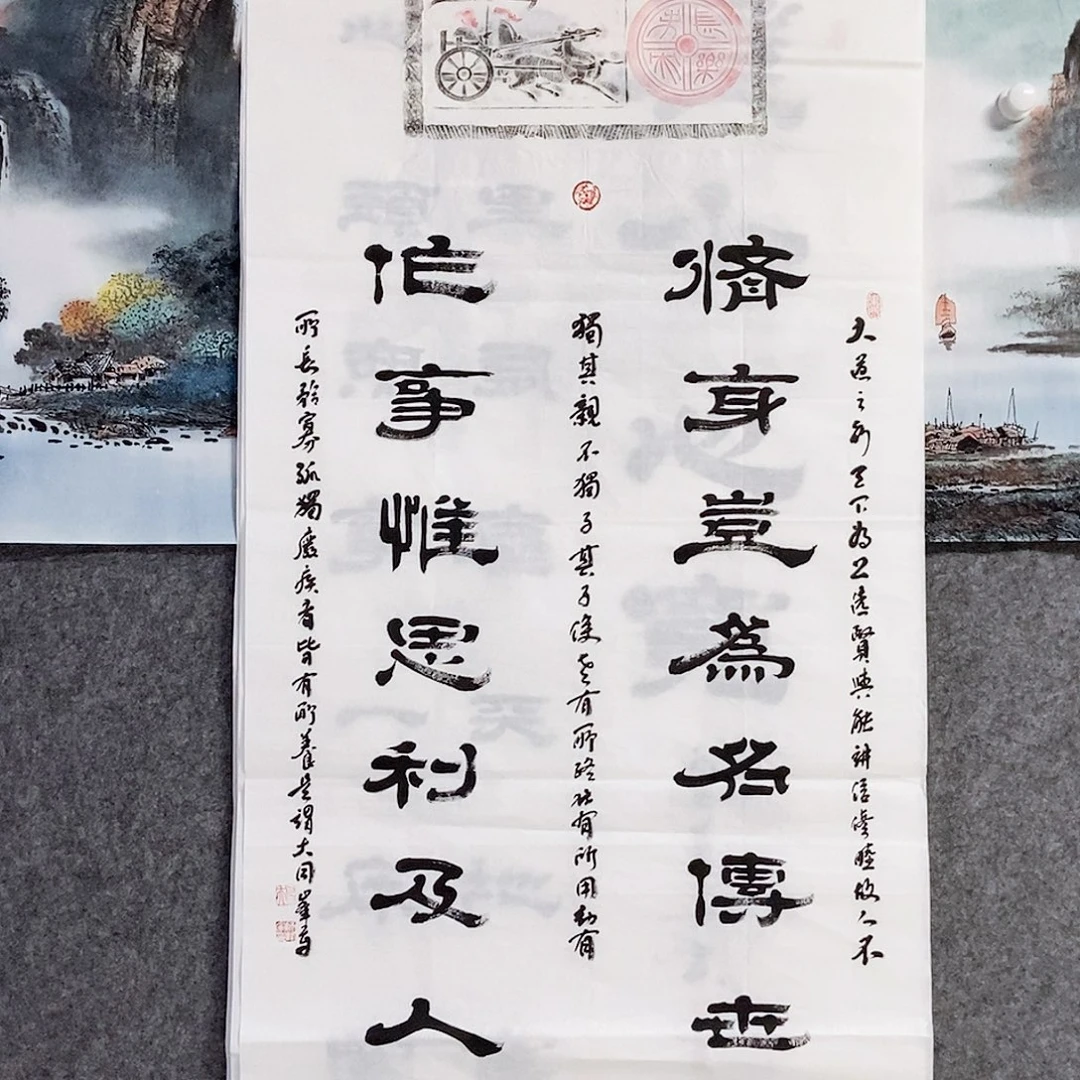 長樂未央
大道之行天下為公選賢與能講信修睦故人不
脩身豈為名傳世
獨其親不獨子其子使老有所終壯有所用幼有
作事惟思利及人
所長矜寡孤獨廢疾者皆有所養是謂大同